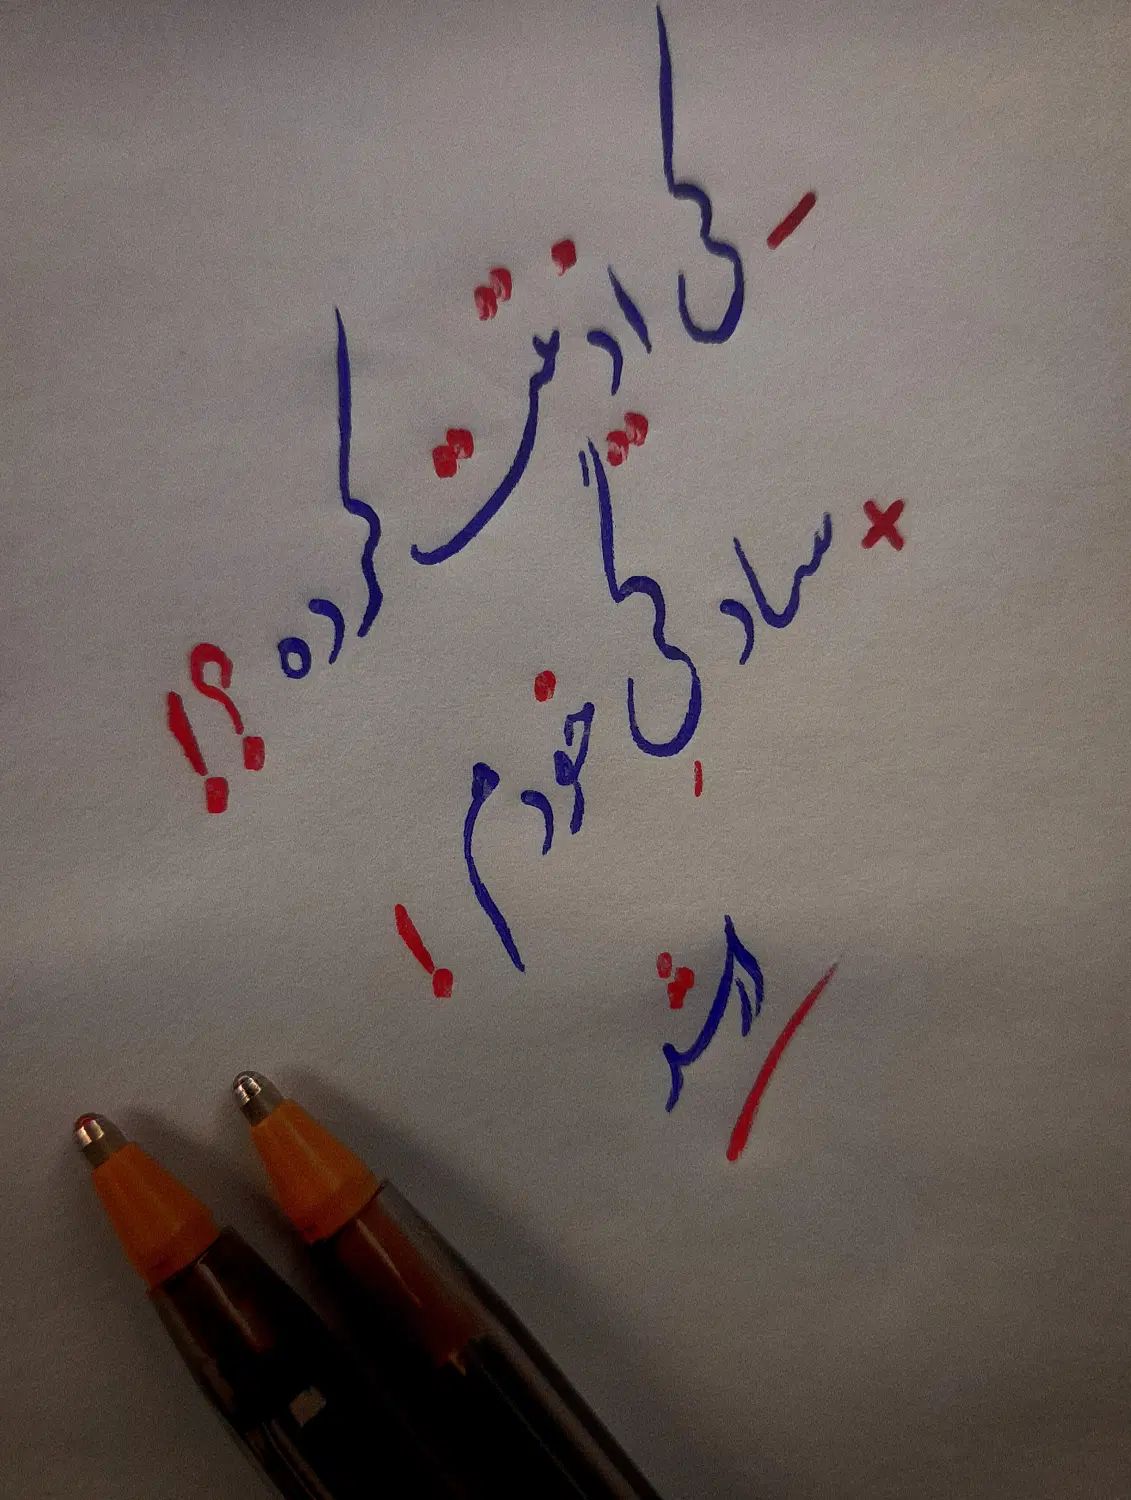 - کی اذیتت کرده؟!
× سادگی خودم!